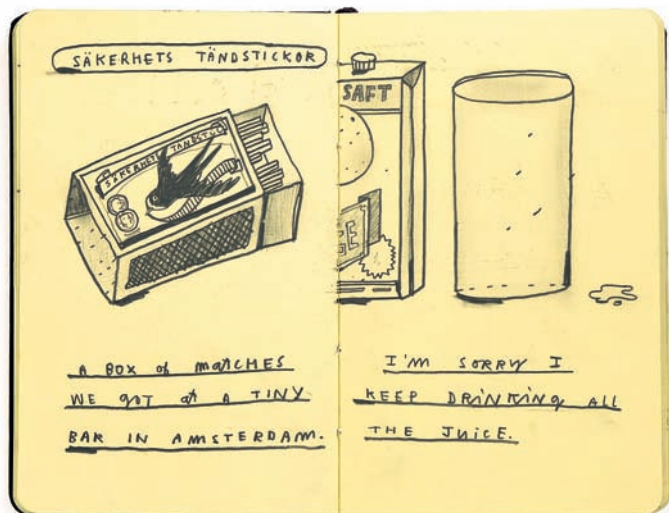 SÄKERHETS TÄNDSTICKOR
SÄKERHETS TANDSTIC
A BOX of matCHES
WE gOT at A TINY
BAR IN AMSTERDAM.
SAFT
GE
I'M SORRY I
KEEP DRINKING ALL
THE JUICE.